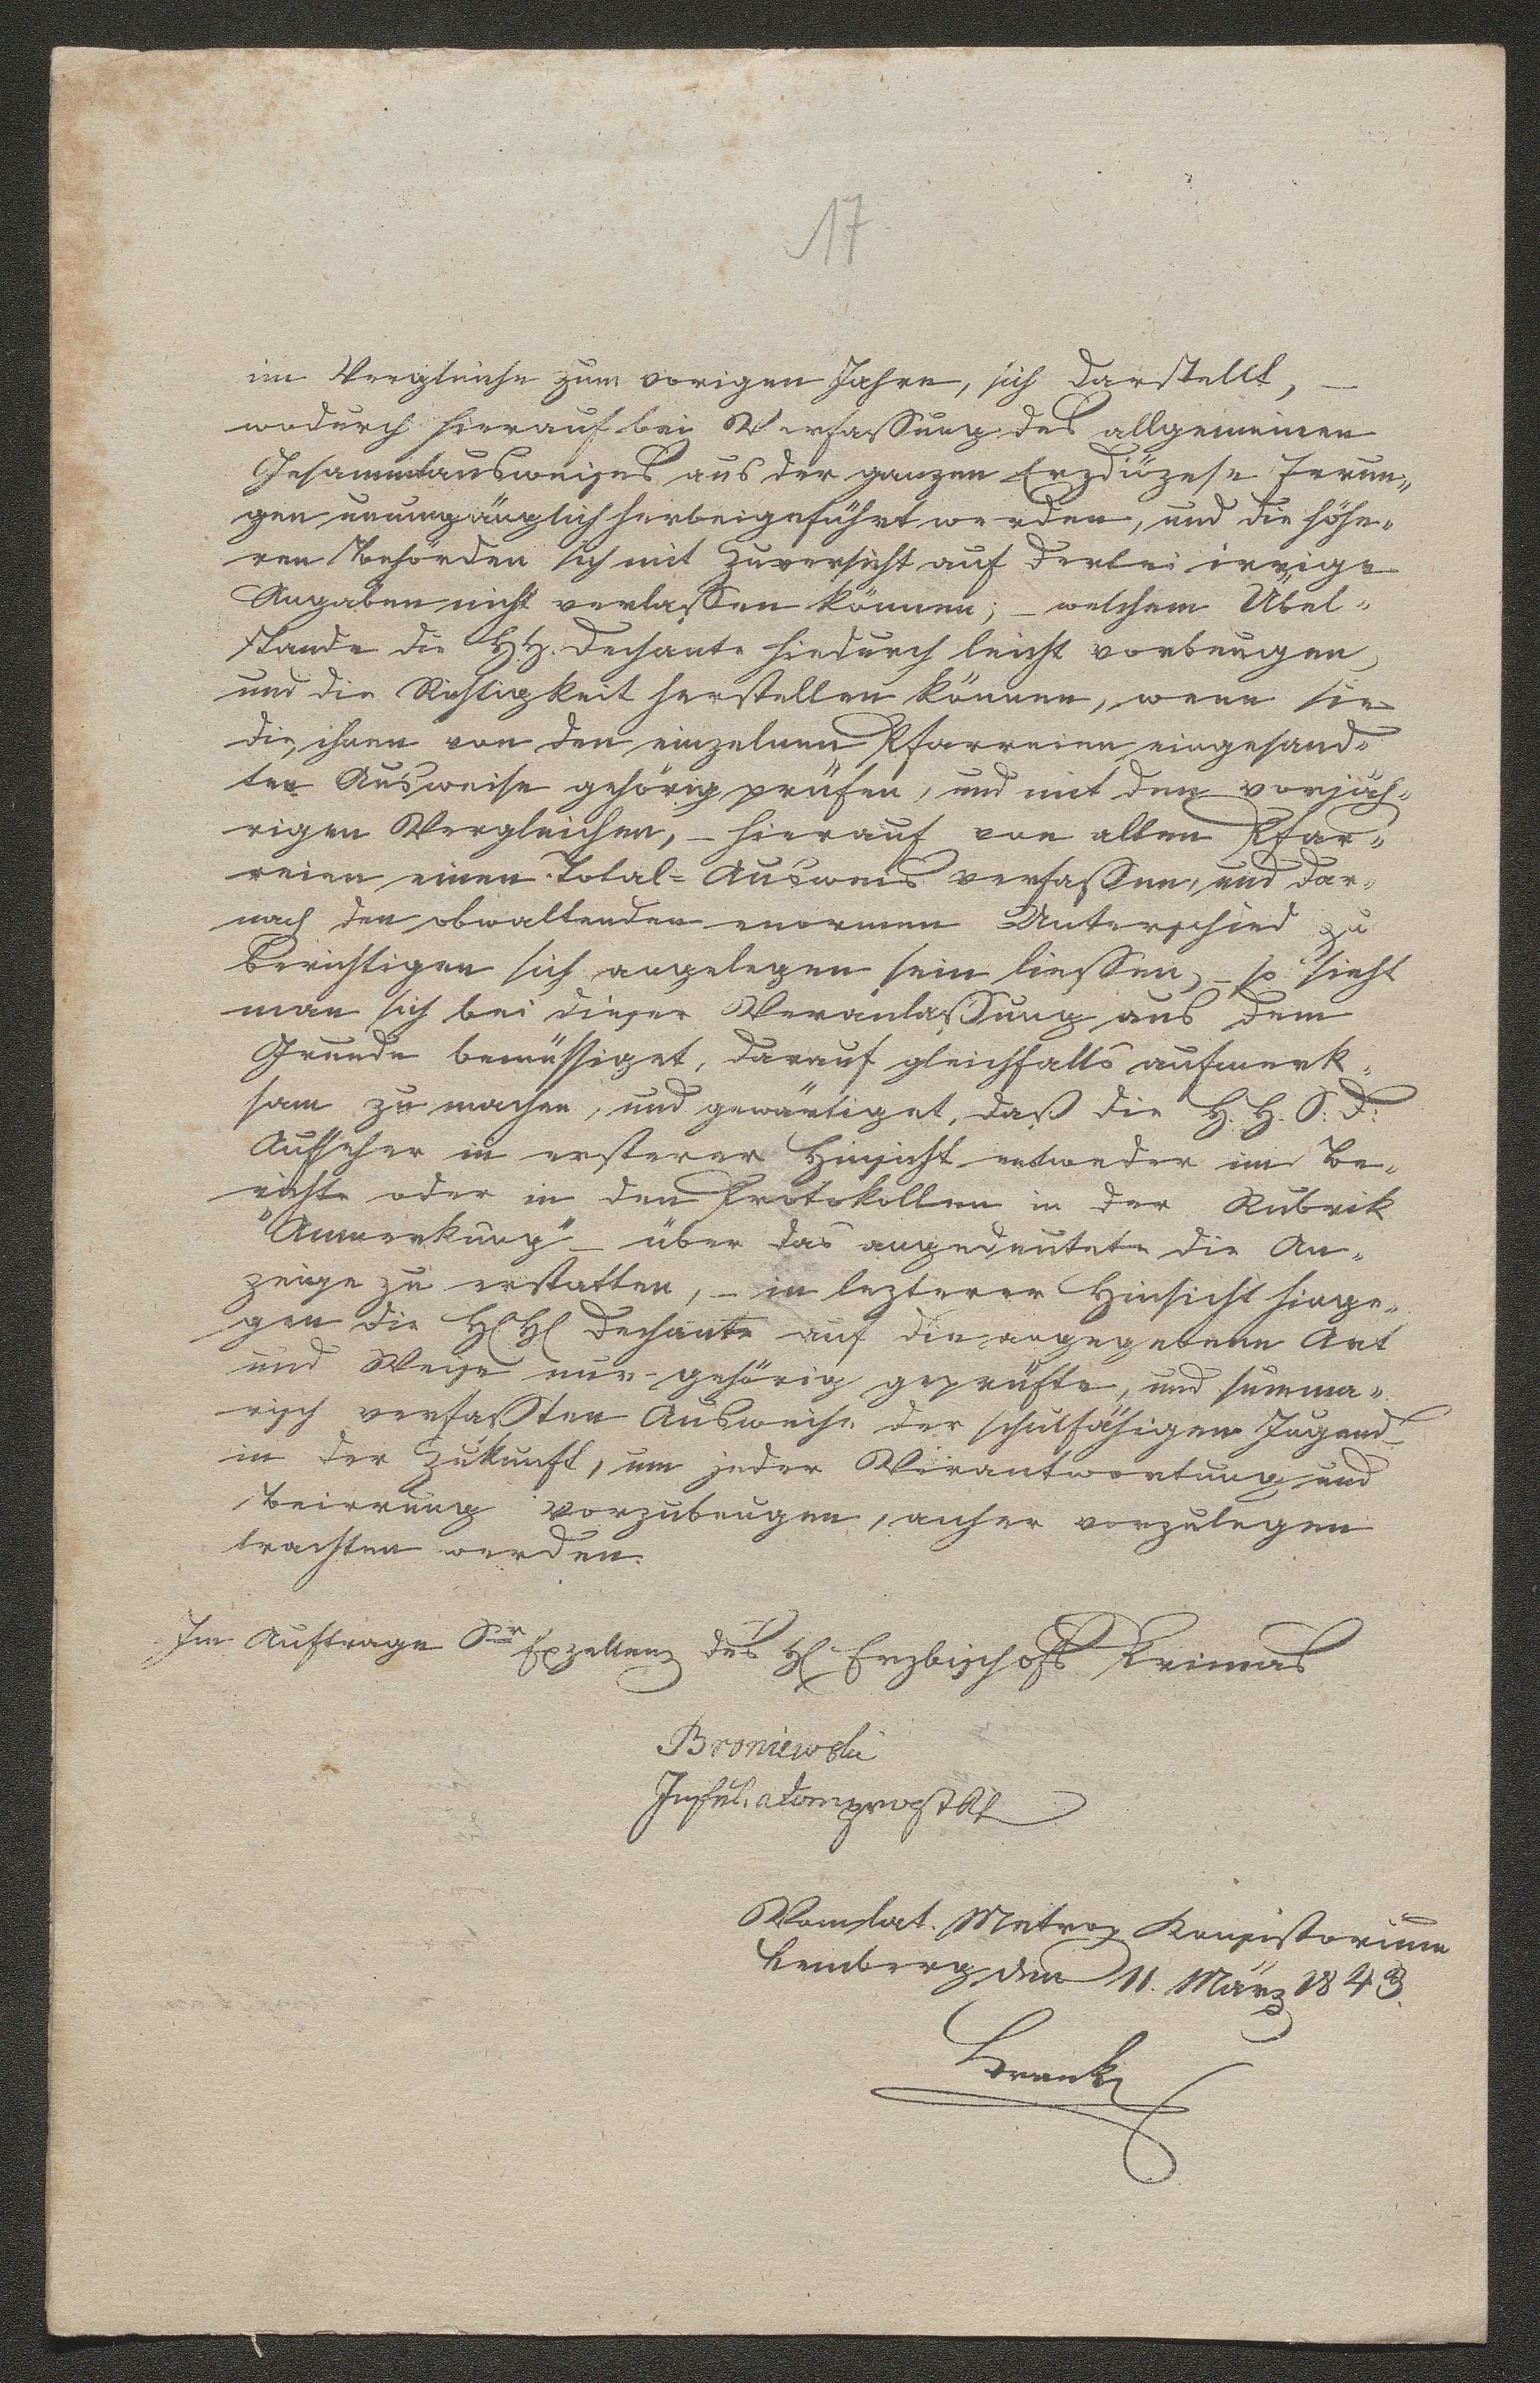 17
im Vergleiche zum vorigen Jahre, sich darstellt, –
wodurch hierauf bei Verfassung des allgemeinen
Gesammtausweises aus der ganzen Erzdiözese Irrun„
gen unumgänglich herbeigeführt werden, und die höhe„
ren Behörden sich mit Zuversicht auf derlei irrige
Angaben nicht verlassen können; – welchem Übel„
stande die H.H. Dechante hiedurch leicht vorbeugen,
und die Richtigkeit herstellen können, wenn sie
die ihnen von den einzelnen Pfarreien eingesand„
ten Ausweise gehörig prüfen, und mit den vorjäh„
rigen Vergleichen, – hierauf von allen Pfar„
reien einen Total-Ausweis verfassen, und dar„
nach den obwaltenden enormen Unterschied zu
berichtigen sich angelegen sein liessen, – so sieht
man sich bei dieser Veranlassung aus dem
Grunde bemüssiget, darauf gleichfalls aufmerk„
sam zu machen, und gewärtiget, daß die H. H. S: D:
Aufseher in ersterer Hinsicht entweder im Be„
richte oder in den Protokollen in der Rubrik
"Anmerkung" – über das angedeutete die An„
zeige zu erstatten, – in lezterer Hinsicht hinge„
gen die H H Dechante auf die angegebene Art
und Weise nur gehörig geprüfte, und summa„
risch verfassten Ausweise der schulfähigen Jugend
in der Zukunft, um jeder Verantwortung und
Beirrung vorzubeugen, anher vorzulegen
trachten werden.
Im Auftrage Sr Exzellenz des H Erzbischofs Primas
Broniewski
Inful. Domprobst
Vom lat. Metrop Konsistorium
Lemberg den 11. März 1843.